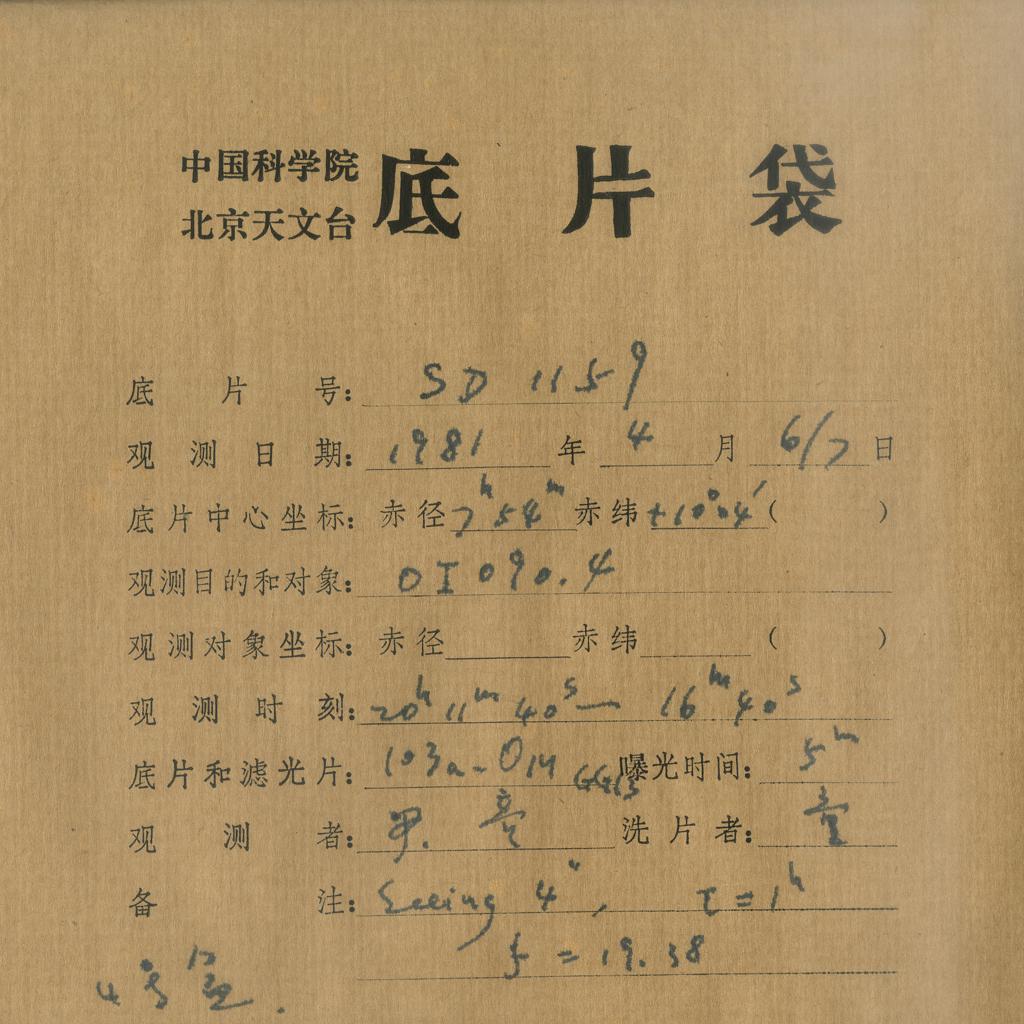 中国科学院
北京天文台
底片袋
底片号: SD 1159
观测日期: 1981 年 4 月 6/7 日
底片中心坐标: 赤径 7ʰ54ᵐ 赤纬 +10°04′ ( )
观测目的和对象: OI 090.4
观测对象坐标: 赤径 赤纬 ( )
观测时刻: 20ʰ 11ᵐ 40ˢ — 16ᵐ 40ˢ
底片和滤光片: 103a-O 曝光时间: 5ᵐ
观测者: 洗片者:
备注: Seeing 4″, τ = 1ʰ
f = 19.38
4号盒.